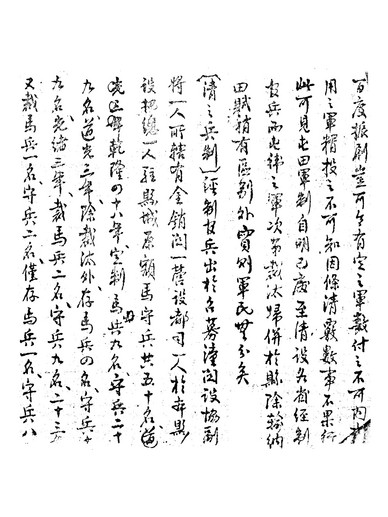 百度振刷豈可令有定之軍數付之不可問
用之軍精投之不可知因條清覈數事不果行
此可見屯田軍制自明已廢至清設各省經制
官兵而屯衛之軍次第裁汰歸併於縣除輸納
田賦稍有區别外實則軍民無分矣
〔清之兵制〕清制官兵出於召募潼關設協副
將一人所轄有金鎖關一營設都司一人於華縣
設把總一人駐縣城原額馬守兵共五十名道
光 乾隆四十八年定制馬兵九名守兵二十
九名道光三年除裁汰外存馬兵四名守兵十
九名光緒三年裁馬兵二名守兵九名二十三年
又裁馬兵一名守兵二名僅存馬兵一名守兵八